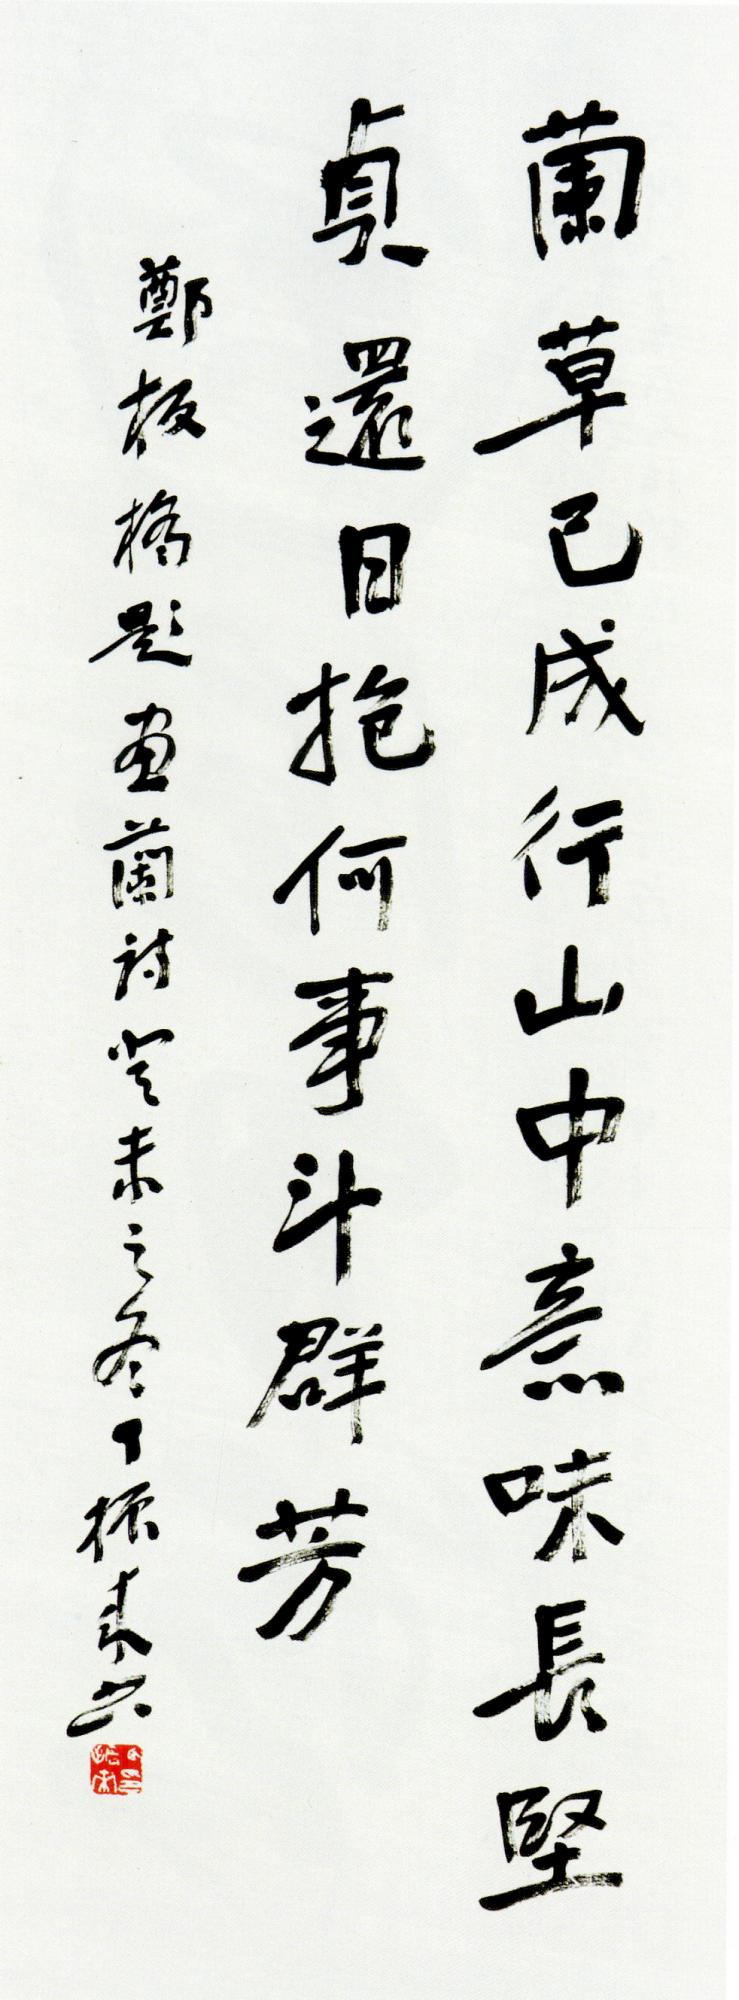 蘭草已成行山中意味長堅
貞還日抱何事斗群芳
鄭板橋題画蘭詩癸未之冬丁振来书